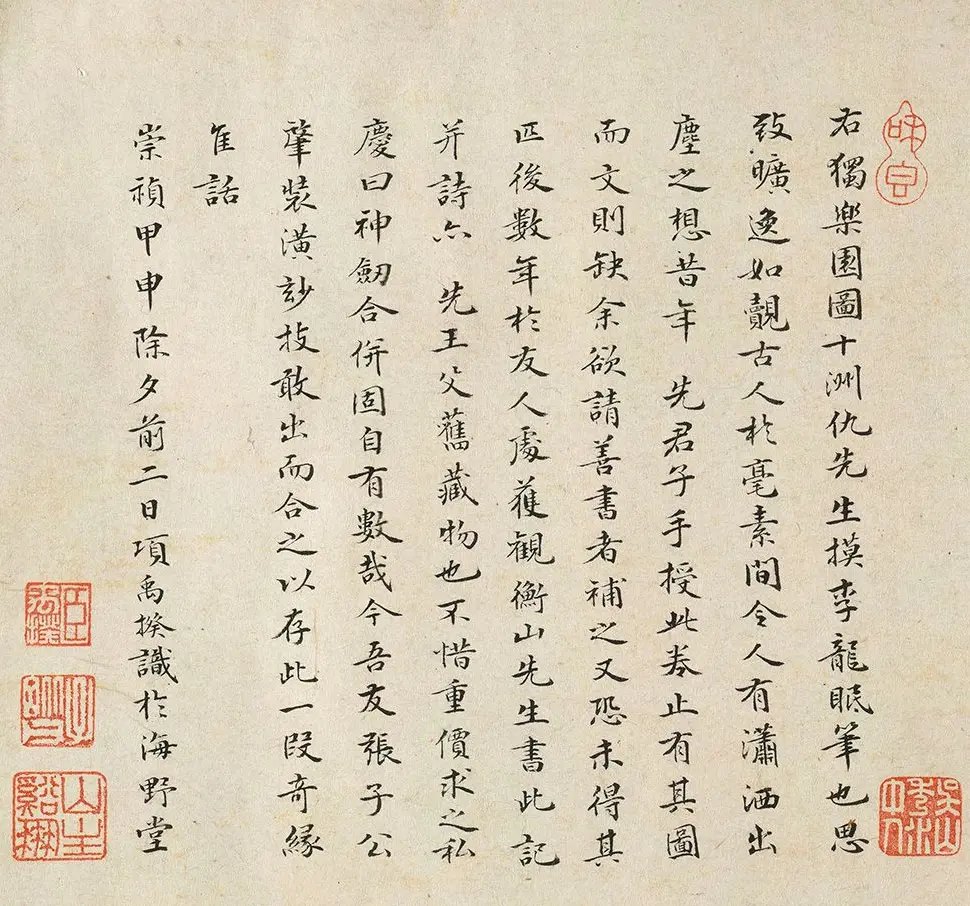 右獨樂園圖十洲仇先生摸李龍眠筆也思
致曠逸如覿古人於毫素間令人有瀟洒出
塵之想昔年 先君子手授此卷止有其圖
而文則缺余欲請善書者補之又恐未得其
匹後數年於友人處獲觀衡山先生書此記
并詩亦 先王父舊藏物也不惜重價求之私
慶曰神劒合併固自有數哉今吾友張子公
肇裝潢玅技敢出而合之以存此一段奇緣
隹話
崇禎甲申除夕前二日項禹揆識於海野堂